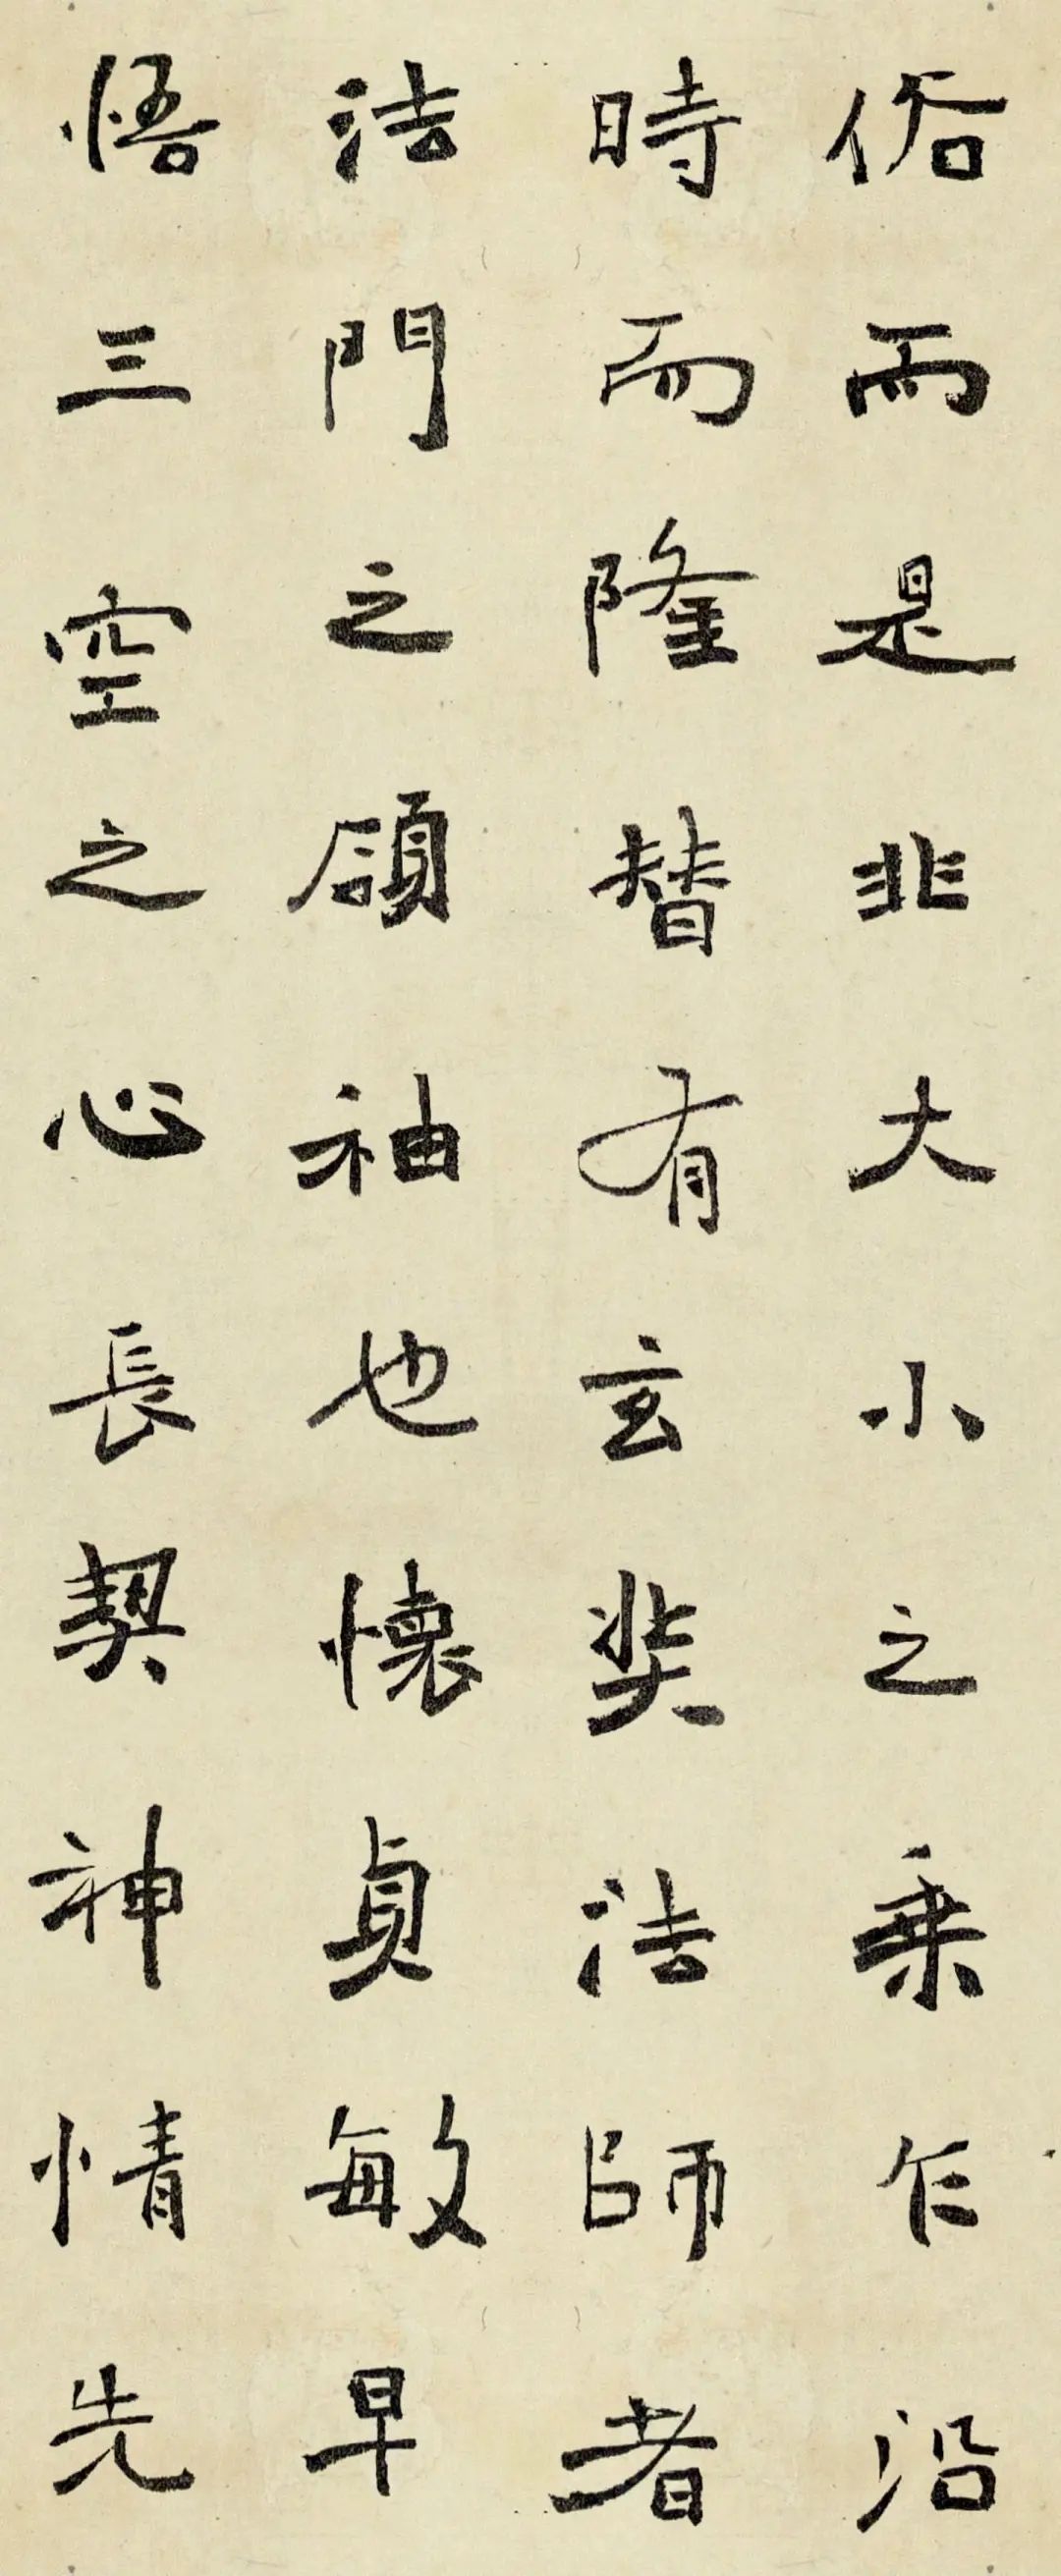 俗而是非大小之乘乍沿
時而隆替有玄奘法師者
法門之領袖也懷貞敏早
悟三空之心長契神情先